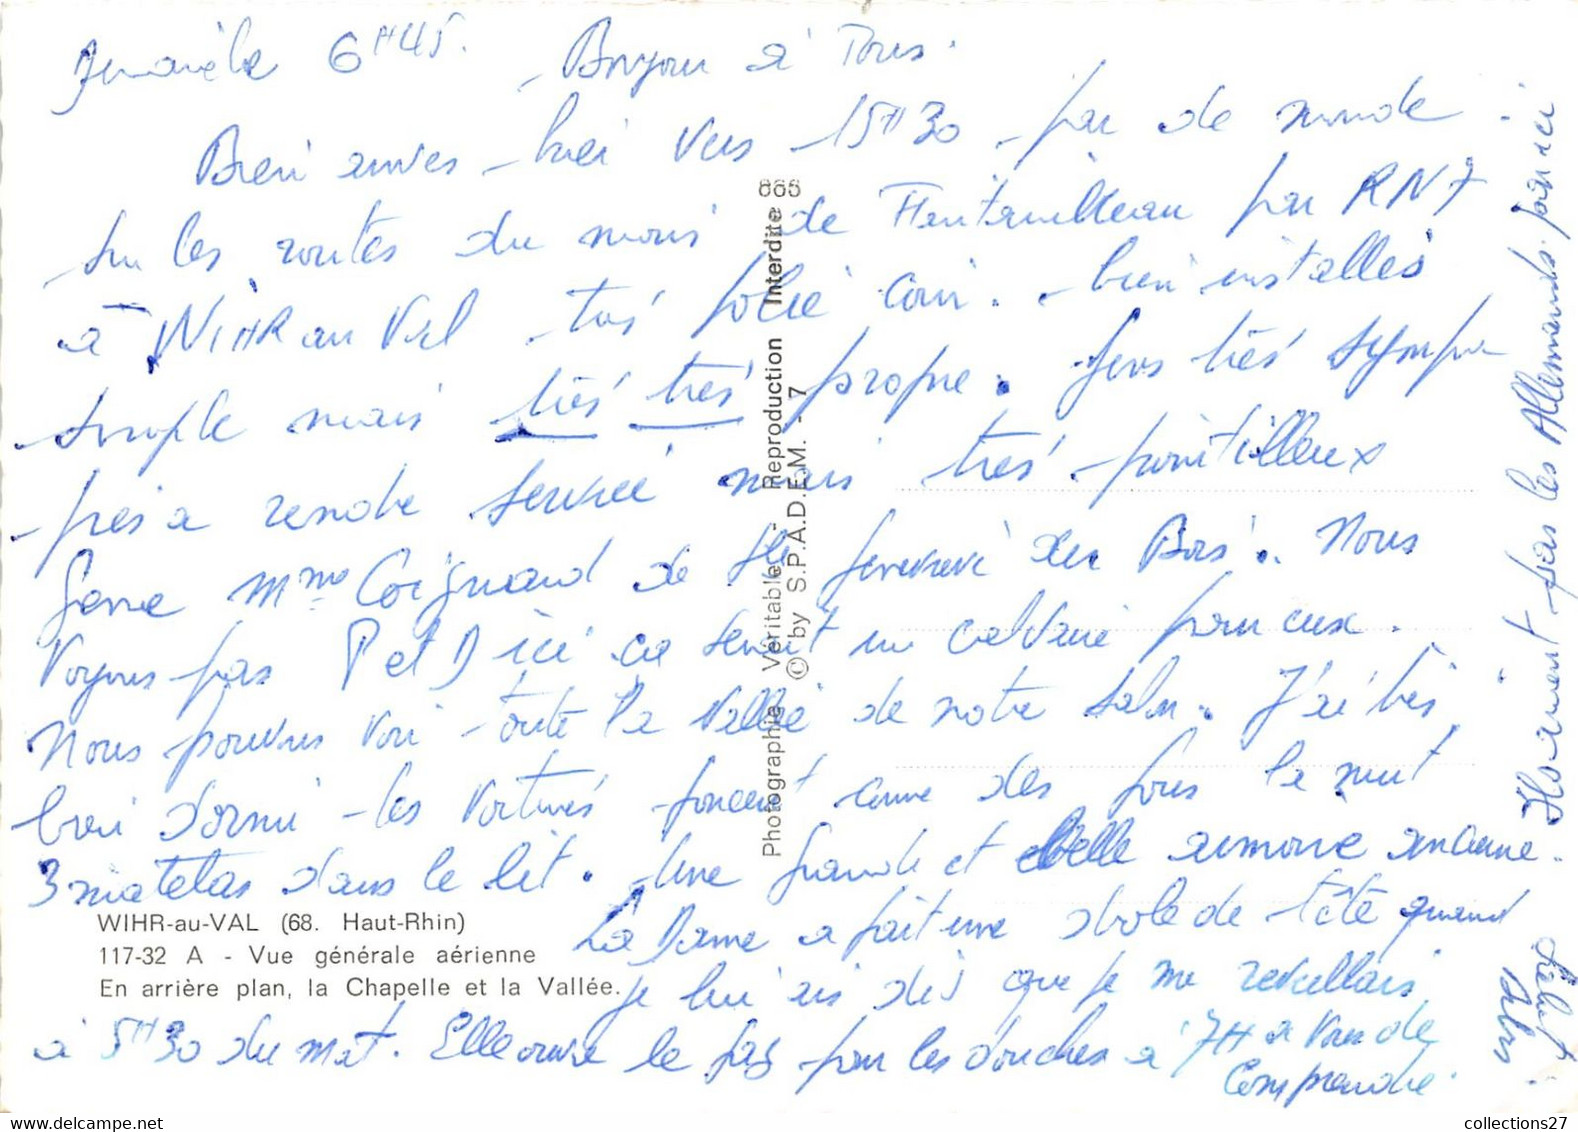 6H45. Bonjour à Tous.
Bien arrivés hier vers 15H30 pas de monde
sur les routes du moins de Fontainebleau par RN7
à WIHR au Val très jolie coin. bien installés
simple mais très très propre. Gens très sympa
près à rendre service mais très pointilleux
genre Mme Coignard de Ste Geneviève des Bois. Nous
voyons pas P et D ici ça serait un calvaire pour eux.
Nous pouvons voir toute la vallée de notre salon. J'ai très
bien dormi les voitures foncent comme des fous la nuit
3 matelas dans le lit. Une grande et belle armoire ancienne.
La Dame a fait une drole de tête quand
je lui ais dis que je me reveillais
à 5H30 du mat. Elle ouvre le gaz pour les douches à 7H à vous de
comprendre.
Heureusement pas les Allemands par ici
Salut
WIHR-au-VAL (68. Haut-Rhin)
117-32 A - Vue générale aérienne
En arrière plan, la Chapelle et la Vallée.
Photographie Véritable - Reproduction Interdite 885
© by S.P.A.D.E.M. - 7
collections27